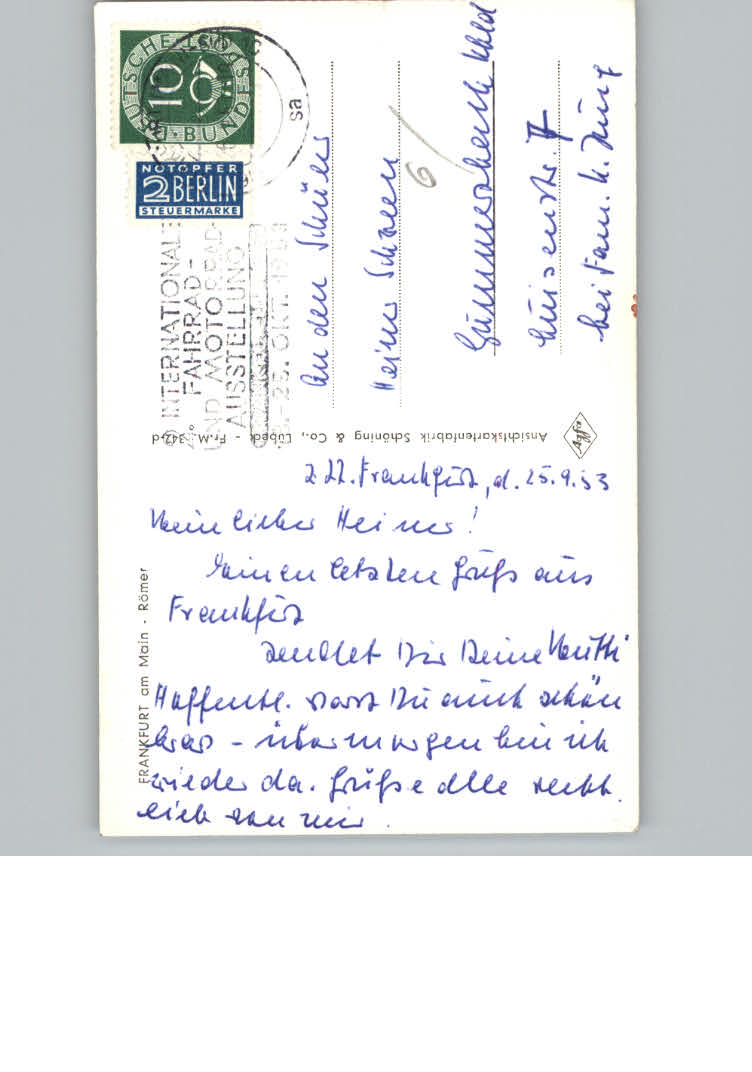 z.Zt. Frankfurt, d. 25.9.53
Mein lieber Heiner!
Einen letzten Gruß aus
Frankfurt
sendet Dir Deine Mutti
Hoffentl. warst Du auch schön
brav - übermorgen bin ich
wieder da. Grüße alle recht
lieb von mir.
An den Schüler
Heiner
Gummersbach
Luisenstr.
bei Fam. K. Jung
6
DEUTSCHE BUNDESPOST
10
NOTOPFER
2 BERLIN
STEUERMARKE
INTERNATIONALE
FAHRRAD-
UND MOTORRAD-
AUSSTELLUNG
OKT. 1953
sa
Ansichtskartenfabrik Schöning & Co., Lübeck - Fr.M. 342-d
FRANKFURT am Main - Römer